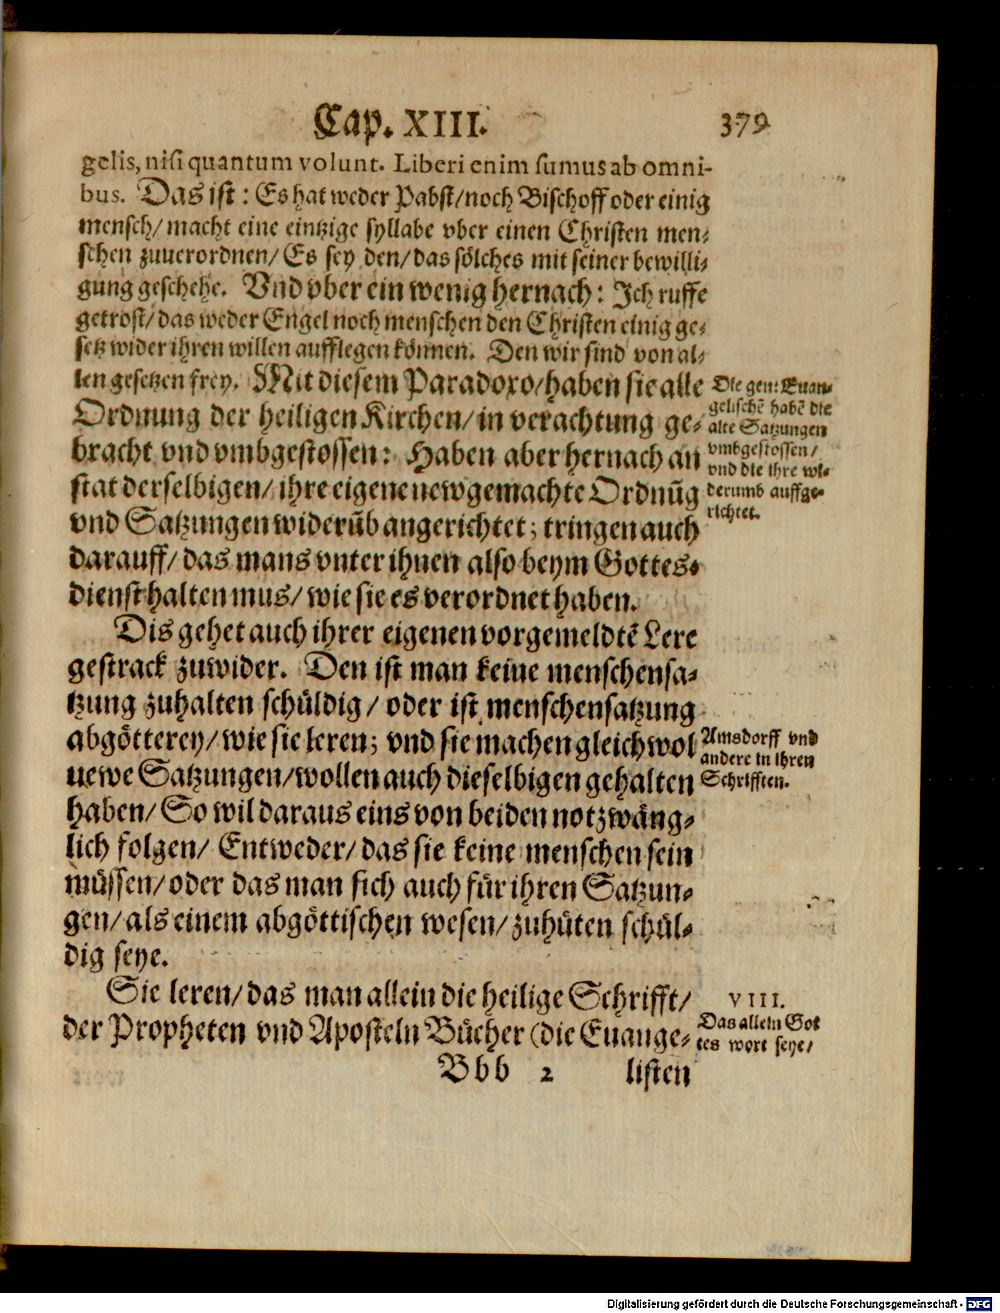 Cap. XIII. 379
gelis, nisi quantum volunt. Liberi enim sumus ab omni-
bus. Das ist: Es hat weder Pabst/noch Bischoff oder einig
mensch/macht eine eintzige syllabe vber einen Christen men-
schen zuuerordnen/Es sey den/das sölches mit seiner bewilli-
gung geschehe. Vnd vber ein wenig hernach: Ich ruffe
getrost/das weder Engel noch menschen den Christen einig ge-
setz wider ihren willen aufflegen können. Den wir sind von al-
len gesetzen frey. Mit diesem Paradoxo/haben sie alle
Ordnung der heiligen Kirchen/in verachtung ge-
bracht vnd vmbgestossen: Haben aber hernach an
stat derselbigen/ihre eigene newgemachte Ordnũg
vnd Satzungen widerũb angerichtet; tringen auch
darauff/das mans vnter ihnen also beym Gottes-
dienst halten mus/wie sie es verordnet haben.
Die gen: Euan-
gelischẽ habẽ die
alte Satzungen
vmbgestossen/
vnd die ihre wi-
derumb auffge-
richtet.
Dis gehet auch ihrer eigenen vorgemeldtẽ Lere
gestrack zuwider. Den ist man keine menschensa-
tzung zuhalten schüldig/oder ist menschensatzung
abgötterey/wie sie leren; vnd sie machen gleichwol
newe Satzungen/wollen auch dieselbigen gehalten
haben/So wil daraus eins von beiden notzwäng-
lich folgen/Entweder/das sie keine menschen sein
müssen/oder das man sich auch für ihren Satzun-
gen/als einem abgöttischen wesen/zuhüten schül-
dig seye.
Amsdorff vnd
andere in ihren
Schrifften.
Sie leren/das man allein die heilige Schrifft/
der Propheten vnd Aposteln Bücher (die Euange-
VIII.
Das allein Got
tes wort seye/
Bbb 2 listen
Digitalisierung gefördert durch die Deutsche Forschungsgemeinschaft - DFG